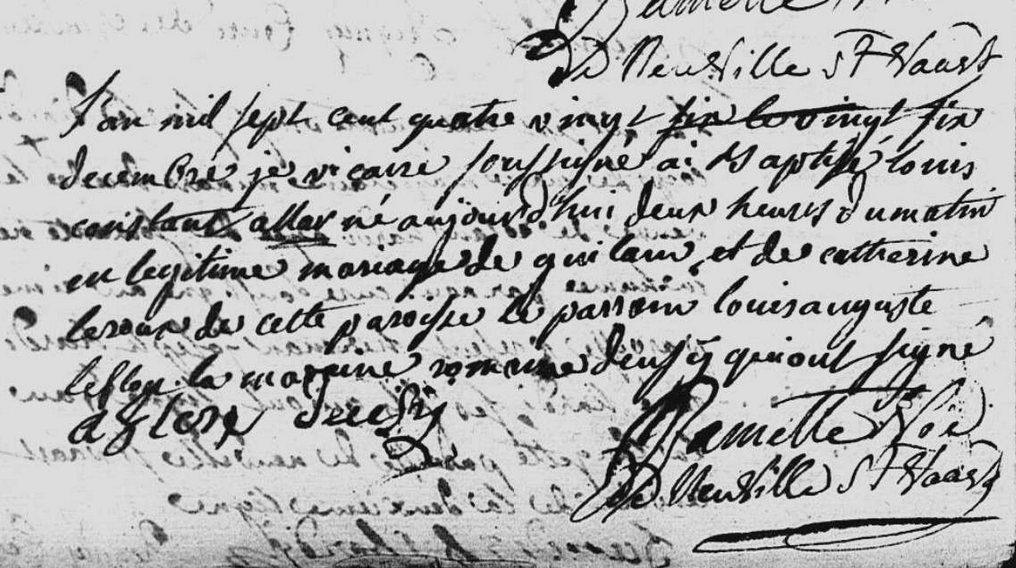 Ramette
De Neuville St Vaast
L'an mil sept cent quatre vingt six le vingt six
decembre je vicaire soussigné ai Baptisé louis
constant allar né aujourd'hui deux heures du matin
en legitime mariage de guilain et de catherine
leroux de cette paroisse le parrain louis auguste
la maraine romaine qui ont signé
Ramette
De Neuville St Vaast